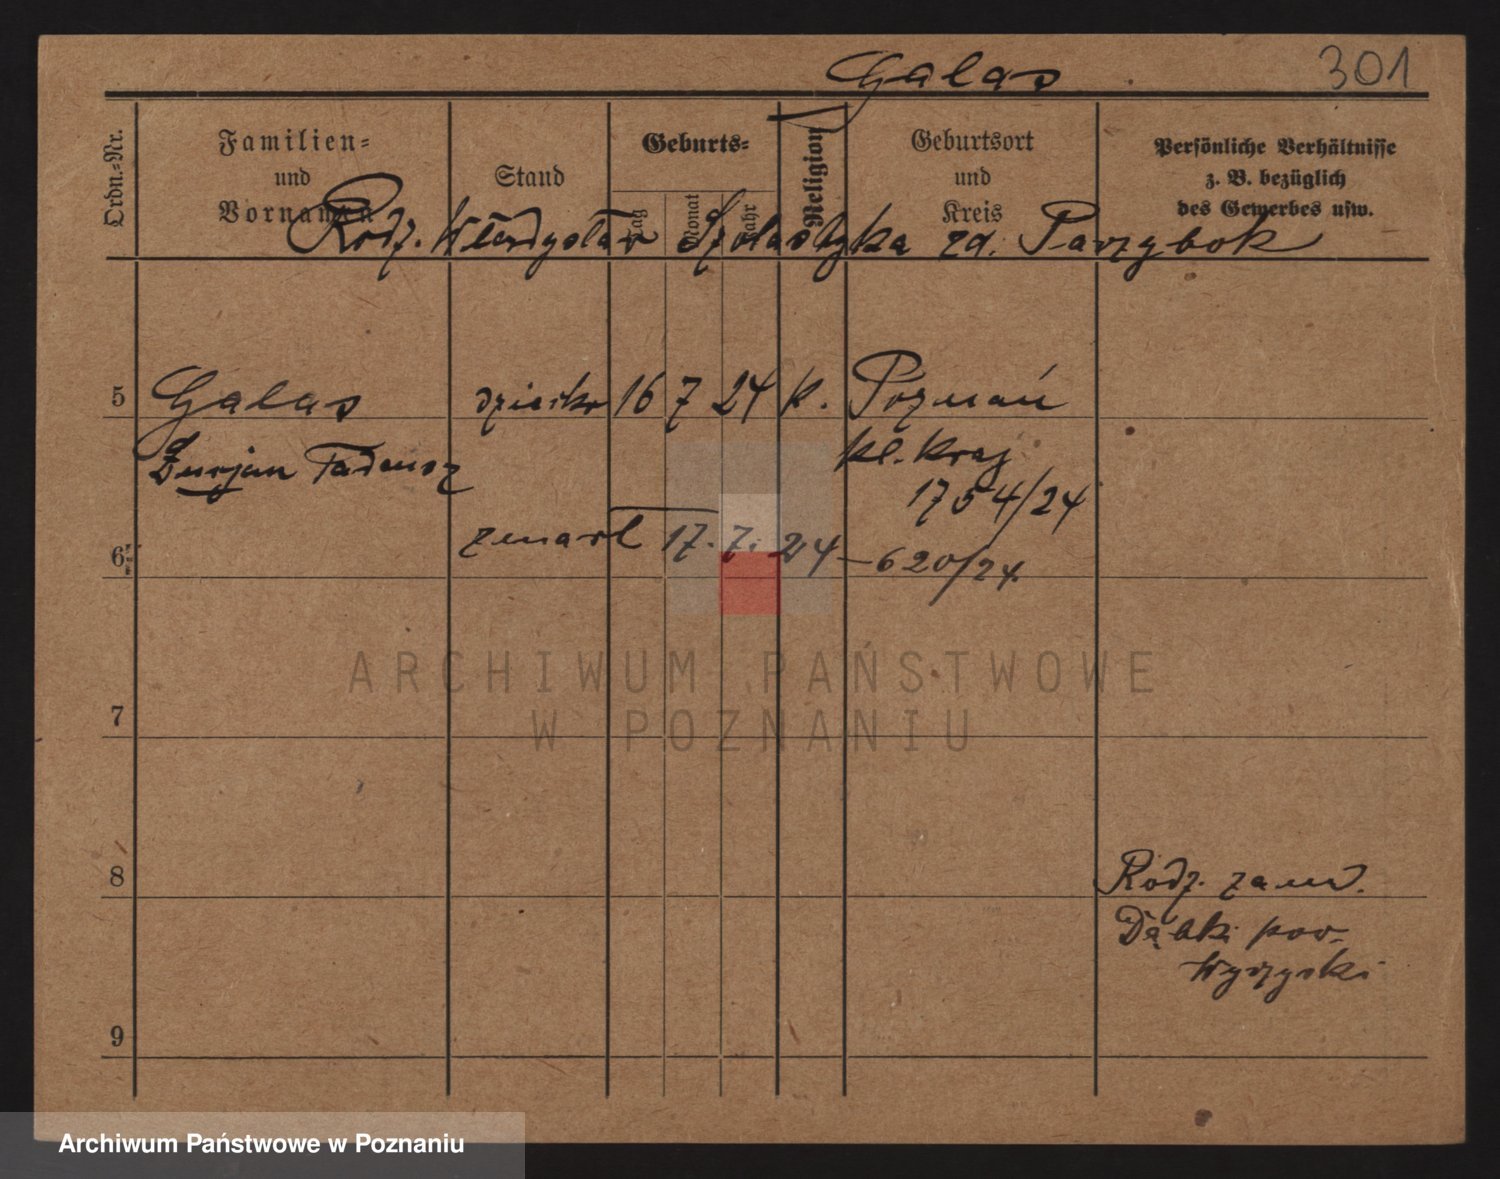 Galas
301
Ordn.-Nr.
Familien-
und
Vornamen
Stand
Geburts-
Tag
Monat
Jahr
Religion
Geburtsort
und
Kreis
Persönliche Verhältnisse
z. B. bezüglich
des Gewerbes usw.
Rodz. Władysław Szolastyka zd. Parzybok
5 Galas dziecko 16 7 24 k. Poznań
Tadeusz
kl. Kraj
1754/24
6 zmarł 17. 7. 24 – 620/24.
ARCHIWUM PAŃSTWOWE
W POZNANIU
7
8 Rodz. zam.
Dąbki pow.
Wyrzyski
9
Archiwum Państwowe w Poznaniu